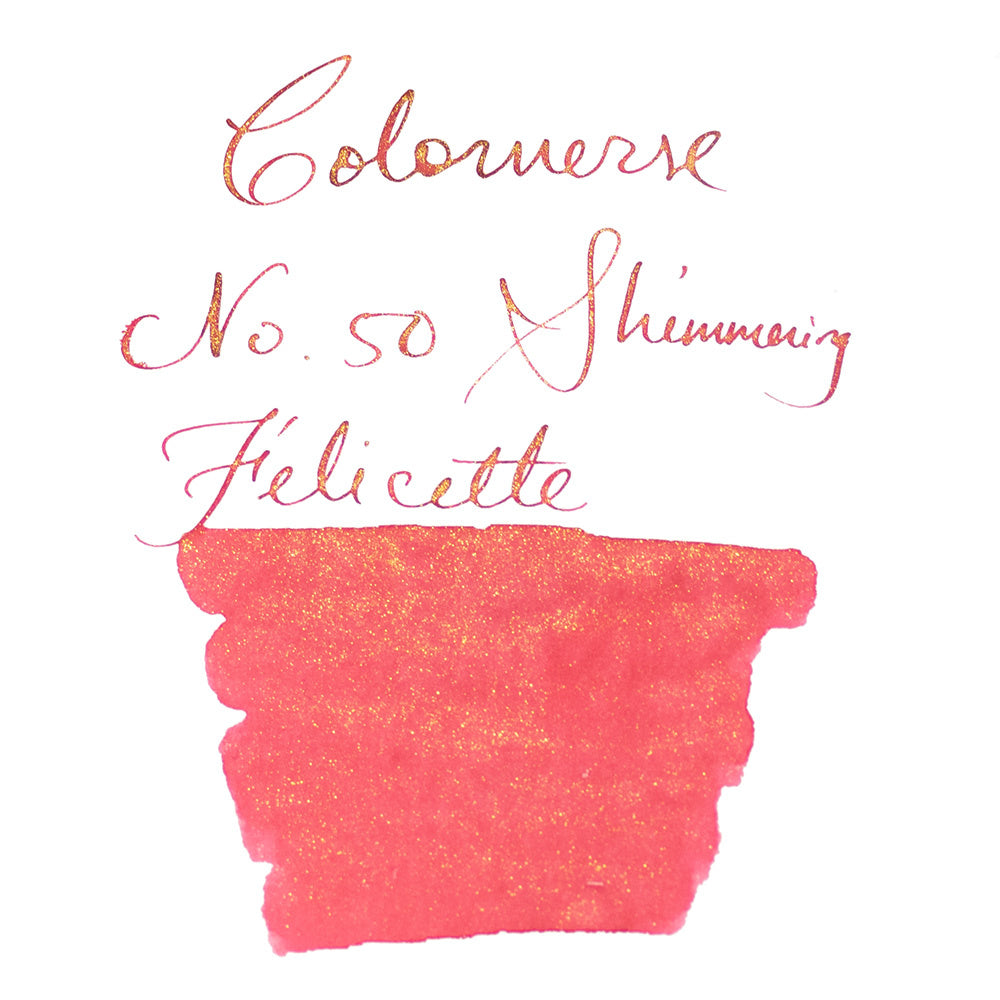 Colorverse
No. 50 Shimmering
Félicette